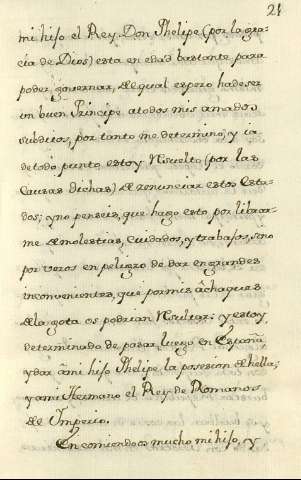 21
mi hijo el Rey Don Phelipe (por la gra-
cia de Dios) esta en edad bastante para
poder governar, el qual espero ha de ser
un buen Principe a todos mis amados
subditos, por tanto me determino, y ia
de todo punto estoy resuelto (por las
Causas dichas) de renunciar estos Esta-
dos; y no penseis, que hago esto por librar-
me de molestias, cuidados, y trabajos, sino
por veros en peligro de dar en grandes
inconvenientes, que por mis achaques
de la gota os podrian resultar: y estoy
determinado de pasar luego en España
y dar a mi hijo Phelipe la posesion de ellas,
y a mi Hermano el Rey de Romanos
el Imperio.
Encomiendoos mucho mi hijo, y